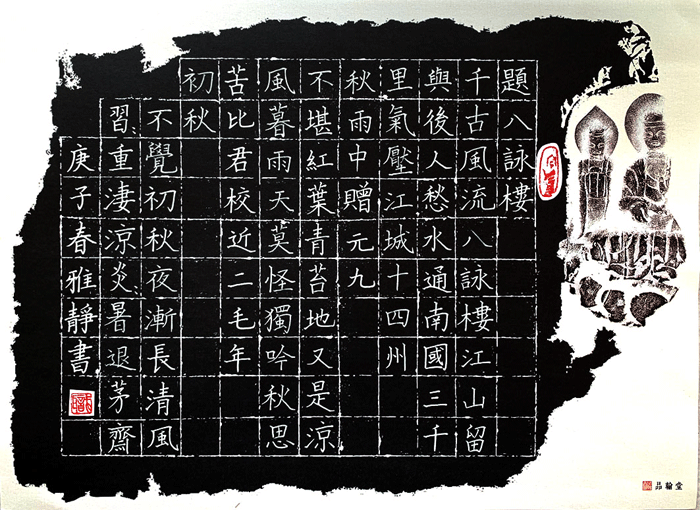 題八詠樓
千古風流八詠樓江山留
與後人愁水通南國三千
里氣壓江城十四州
秋雨中贈元九
不堪紅葉青苔地又是涼
風暮雨天莫怪獨吟秋思
苦比君校近二毛年
初秋
不覺初秋夜漸長清風
習重淒涼炎暑退茅齋
庚子春雅靜書
翰堂